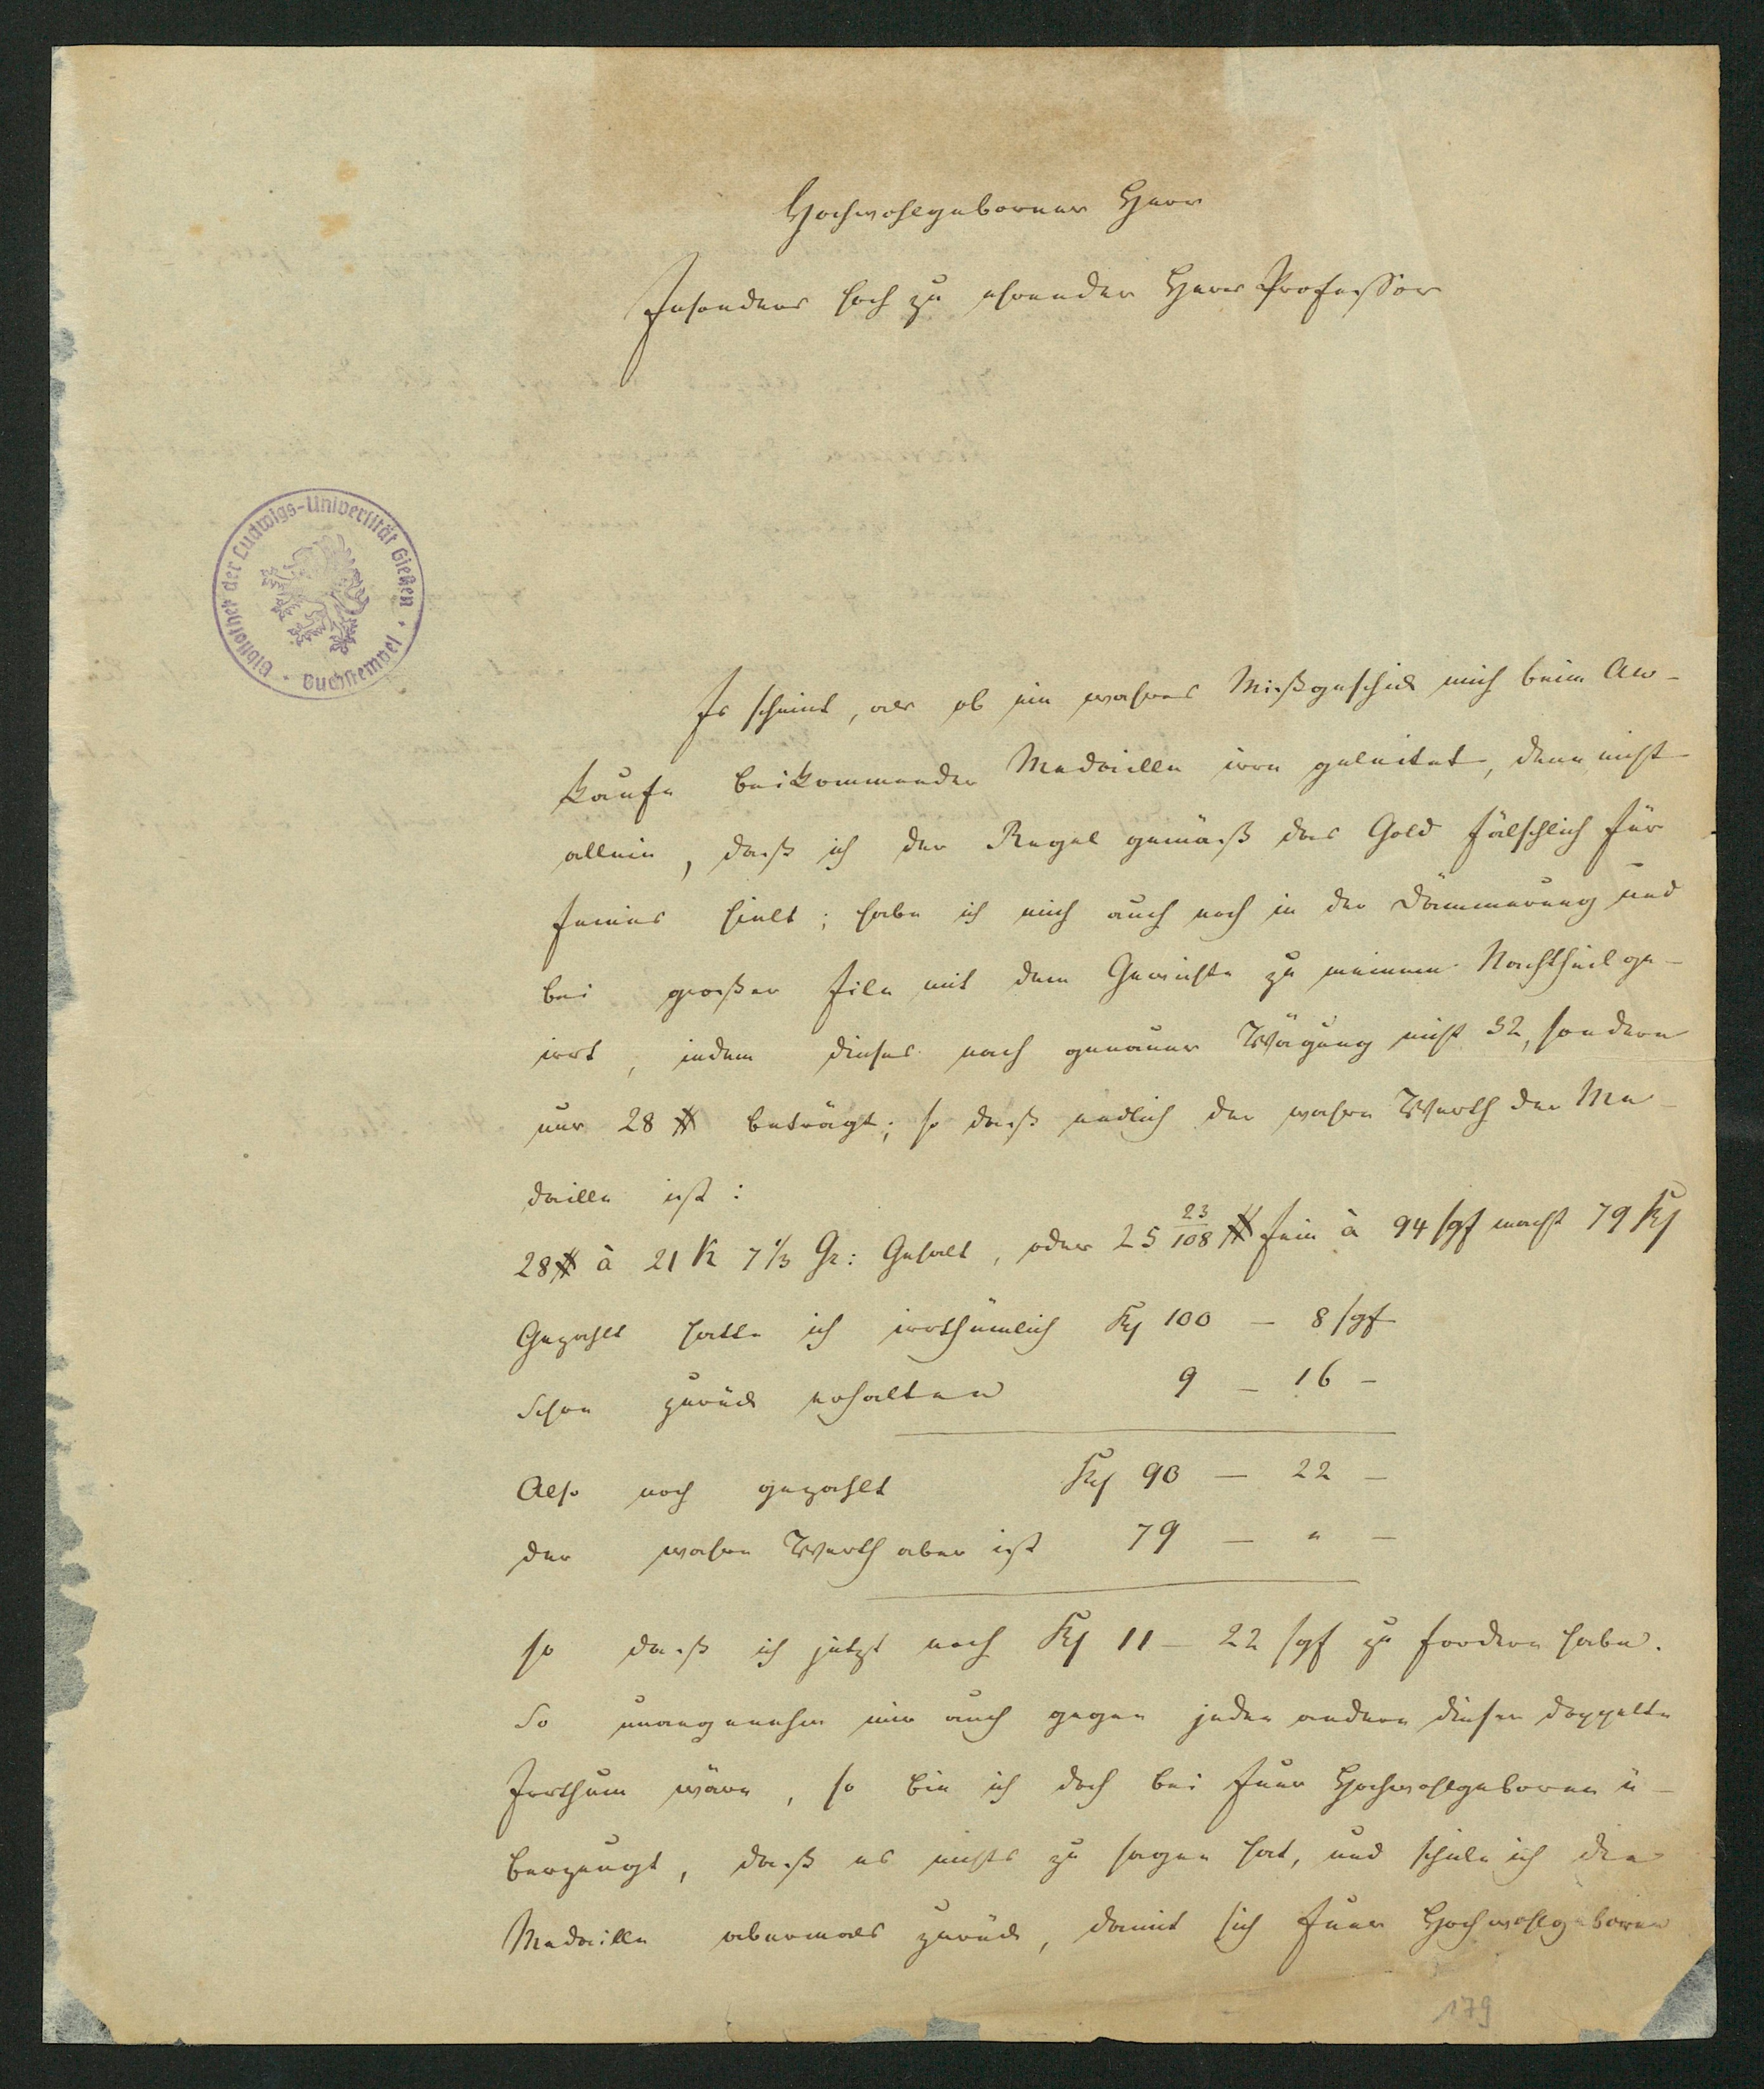 Hochwohlgeborner Herr
Insonders hoch zu ehrender Herr Professor
Bibliothek der Ludwigs-Universität Gießen · Buchstempel ·
Es scheint, als ob ein wahres Mißgeschick mich beim An-
kaufe beikommender Medaille irre geleitet, denn nicht
allein, daß ich der Regel gemäß das Gold fälschlich für
feines hielt; habe ich mich auch noch in der Dämmerung und
bei großer Eile mit dem Gewichte zu meinem Nachtheil ge-
irrt, indem dieses nach genauer Wägung nicht 32, sondern
nur 28 # beträgt; so daß endlich der wahre Werth der Me-
daille ist:
28 # à 21 K 7 1/3 Gr: Gehalt, oder 25 23/108 # fein à 94 sgf macht 79 Rth
Gezahlt hatte ich irrthümlich Rth 100 – 8 sgf
Schon zurück erhalten 9 – 16 –
Also noch gezahlt Rth 90 – 22 –
der wahre Werth aber ist 79 – " –
so daß ich jetzt noch Rth 11 – 22 sgf zu fordern habe.
So unangenehm mir auch gegen jeden andern dieser doppelte
Irrthum wäre, so bin ich doch bei Euer Hochwohlgeboren ü-
berzeugt, daß es nichts zu sagen hat, und schicke ich die
Medaille abermals zurück, damit sich Euer Hochwohlgeboren
179